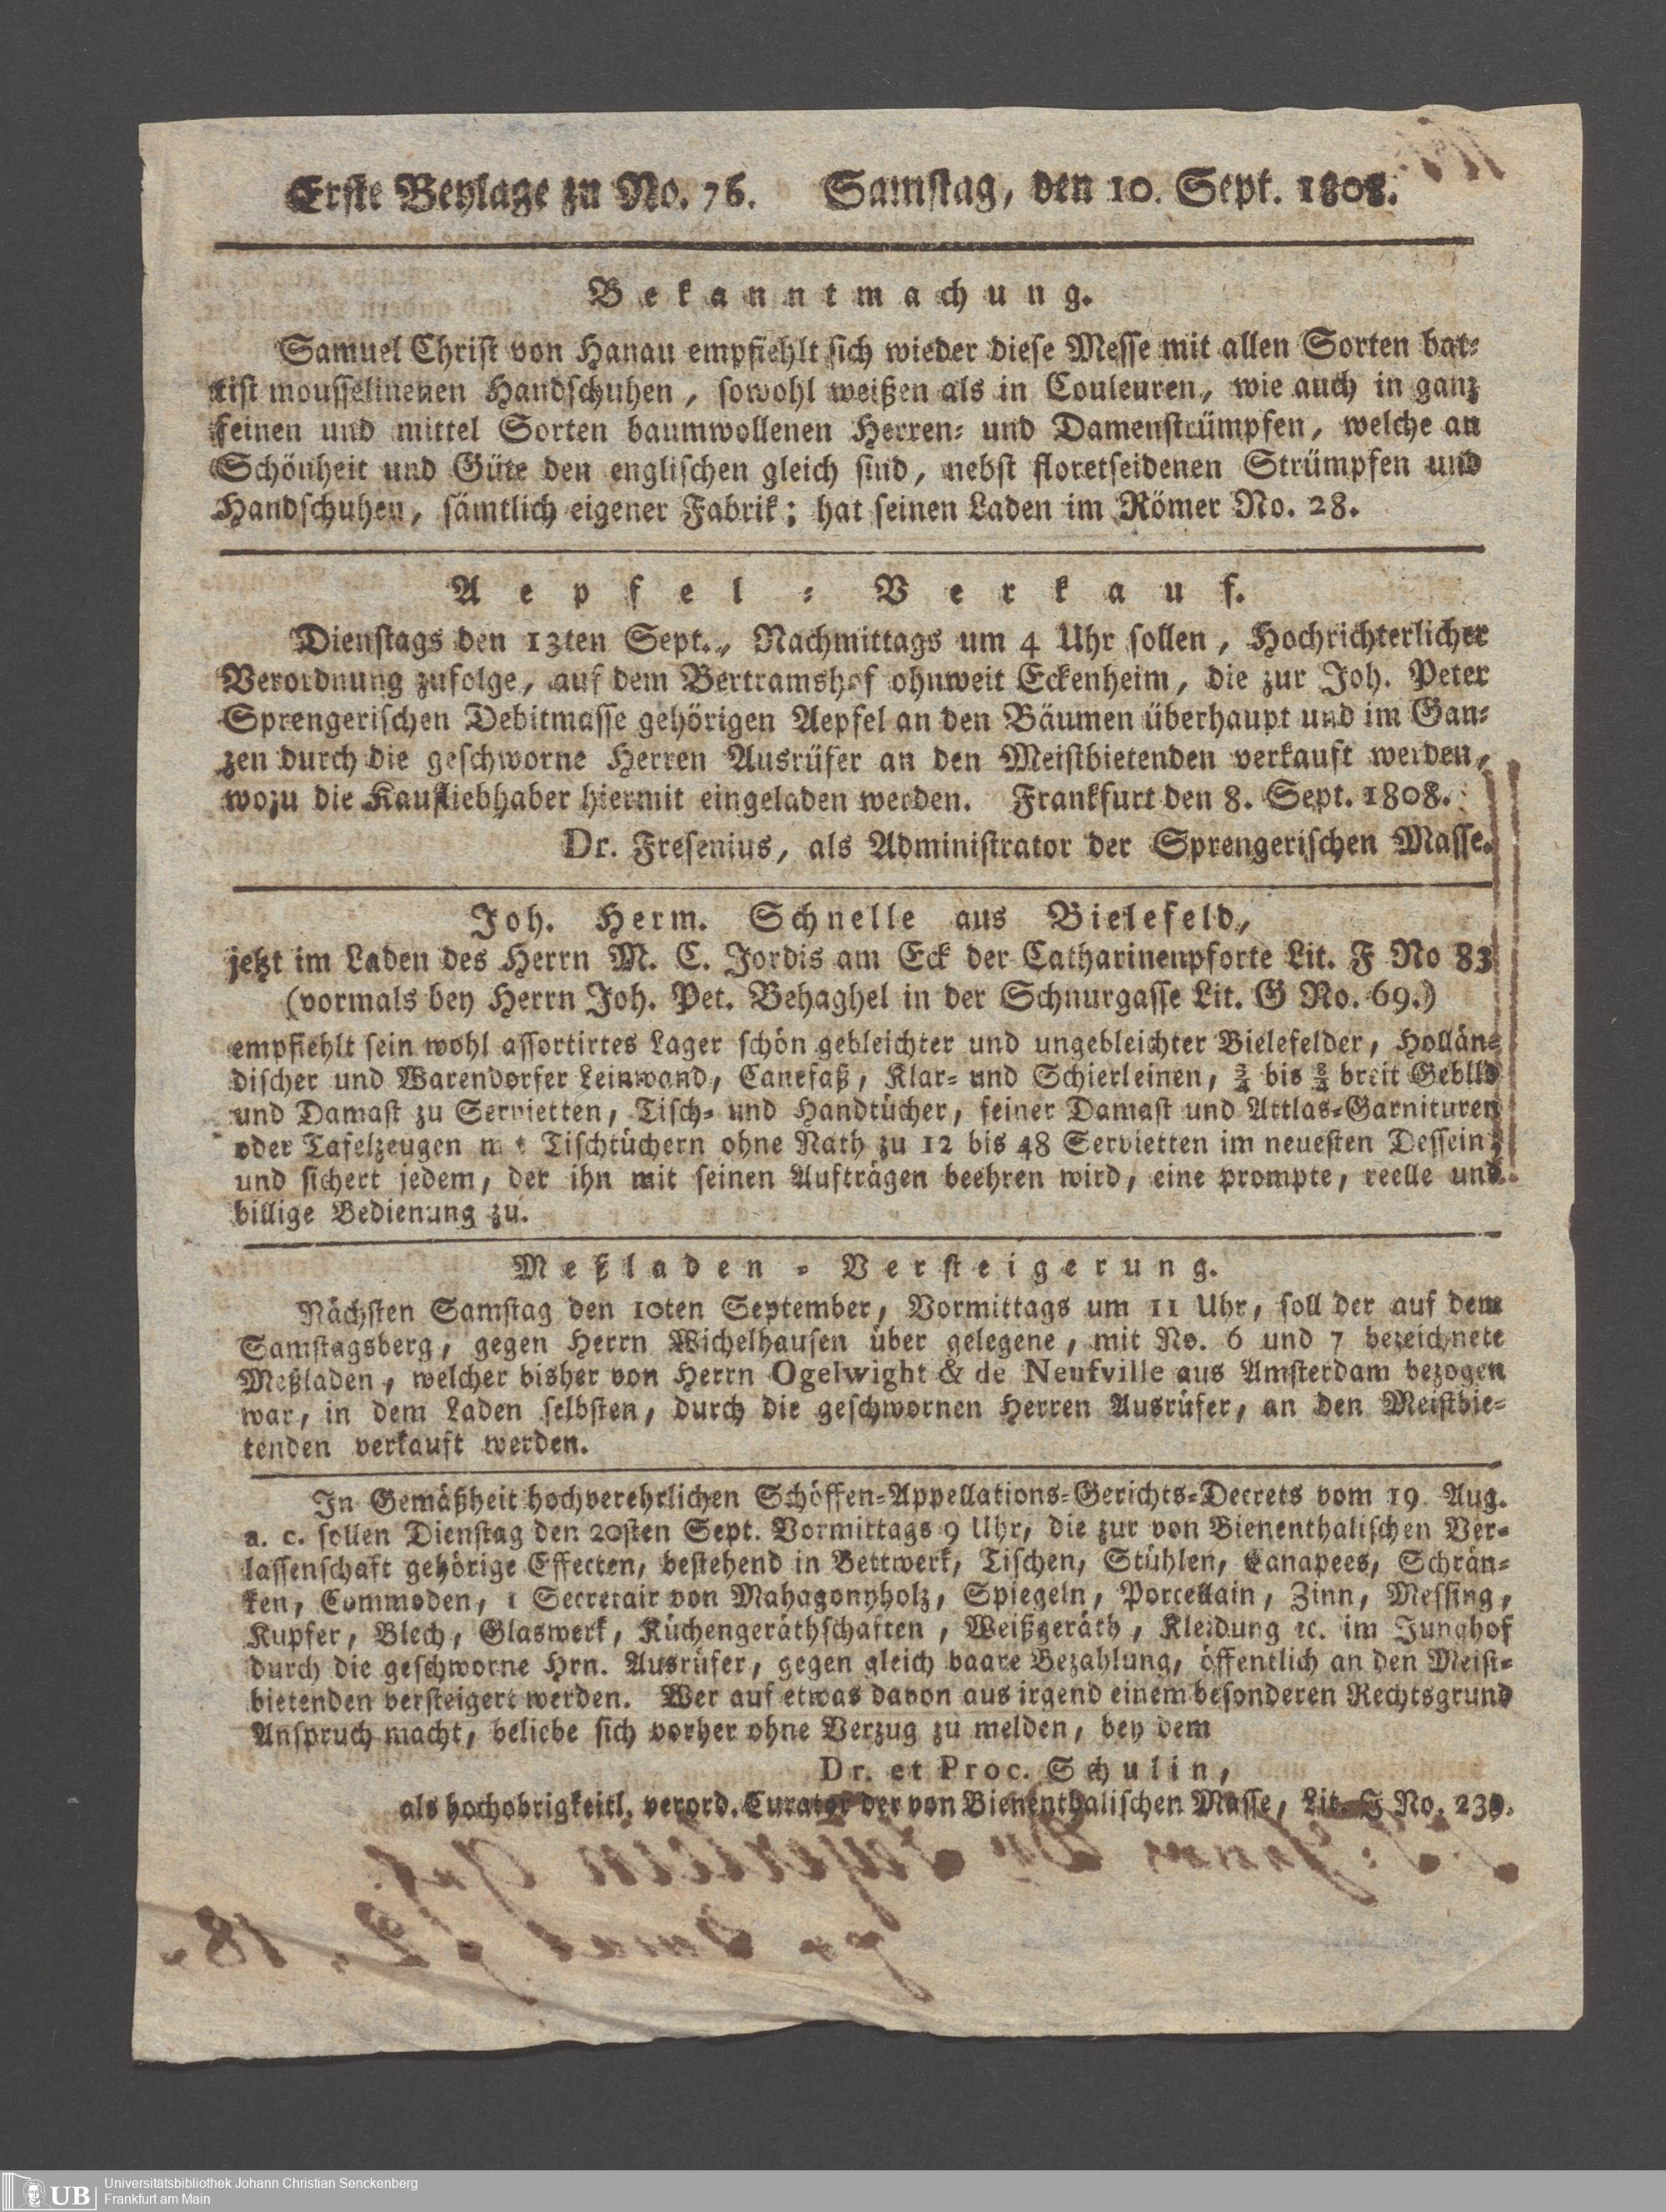 Erste Beylage zu No. 76. Samstag, den 10. Sept. 1808.
Bekanntmachung.
Samuel Christ von Hanau empfiehlt sich wieder diese Messe mit allen Sorten bat-
tist mousselinenen Handschuhen, sowohl weißen als in Couleuren, wie auch in ganz
feinen und mittel Sorten baumwollenen Herren- und Damenstrümpfen, welche an
Schönheit und Güte den englischen gleich sind, nebst floretseidenen Strümpfen und
Handschuhen, sämtlich eigener Fabrik; hat seinen Laden im Römer No. 28.
Aepfel-Verkauf.
Dienstags den 13ten Sept., Nachmittags um 4 Uhr sollen, Hochrichterlicher
Verordnung zufolge, auf dem Bertramshof ohnweit Eckenheim, die zur Joh. Peter
Sprengerischen Debitmasse gehörigen Aepfel an den Bäumen überhaupt und im Gan-
zen durch die geschworne Herren Ausrüfer an den Meistbietenden verkauft werden,
wozu die Kaufliebhaber hiermit eingeladen werden. Frankfurt den 8. Sept. 1808.
Dr. Fresenius, als Administrator der Sprengerischen Masse.
Joh. Herm. Schnelle aus Bielefeld,
jetzt im Laden des Herrn M. C. Jordis am Eck der Catharinenpforte Lit. F No 83
(vormals bey Herrn Joh. Pet. Behaghel in der Schnurgasse Lit. G No. 69.)
empfiehlt sein wohl assortirtes Lager schön gebleichter und ungebleichter Bielefelder, Hollän-
discher und Warendorfer Leinwand, Canefaß, Klar- und Schierleinen, 3/4 bis 8/4 breit Gebild
und Damast zu Servietten, Tisch- und Handtücher, feiner Damast und Attlas-Garnituren
oder Tafelzeugen mit Tischtüchern ohne Nath zu 12 bis 48 Servietten im neuesten Dessein,
und sichert jedem, der ihn mit seinen Aufträgen beehren wird, eine prompte, reelle und
billige Bedienung zu.
Meßladen-Versteigerung.
Nächsten Samstag den 10ten September, Vormittags um 11 Uhr, soll der auf dem
Samstagsberg, gegen Herrn Wichelhausen über gelegene, mit No. 6 und 7 bezeichnete
Meßladen, welcher bisher von Herrn Ogelwight & de Neufville aus Amsterdam bezogen
war, in dem Laden selbsten, durch die geschwornen Herren Ausrüfer, an den Meistbie-
tenden verkauft werden.
In Gemäßheit hochverehrlichen Schöffen-Appellations-Gerichts-Decrets vom 19. Aug.
a. c. sollen Dienstag den 20sten Sept. Vormittags 9 Uhr, die zur von Bienenthalischen Ver-
lassenschaft gehörige Effecten, bestehend in Bettwerk, Tischen, Stühlen, Canapees, Schrän-
ken, Commoden, 1 Secretair von Mahagonyholz, Spiegeln, Porcellain, Zinn, Messing,
Kupfer, Blech, Glaswerk, Küchengeräthschaften, Weißgeräth, Kleidung ꝛc. im Junghof
durch die geschworne Hrn. Ausrüfer, gegen gleich baare Bezahlung, öffentlich an den Meist-
bietenden versteigert werden. Wer auf etwas davon aus irgend einem besonderen Rechtsgrund
Anspruch macht, beliebe sich vorher ohne Verzug zu melden, bey dem
Dr. et Proc. Schulin,
als hochobrigkeitl. verord. Curator der von Bienenthalischen Masse, Lit. G No. 230.
UB Universitätsbibliothek Johann Christian Senckenberg
Frankfurt am Main